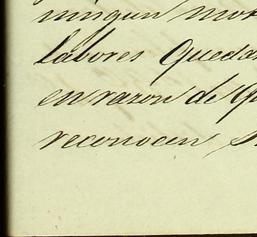 ningun mo
labores queda
en razon de q
reconocen s